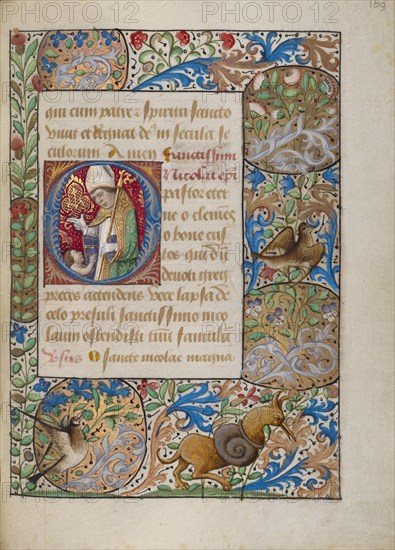 189
qui cum patre ⁊ spiritu sancto
viuit et regnat de⁹ in secula se
culorum Amen Sanctissim
Nicolai epi
pastor eter
ne o clemes
o bone cus
tos qui dū
deuoti greg
preces attendens voce lapsa de
celo presuli sanctissimo nico
laum ostendisti tuū famulū
sancte nicolae magna